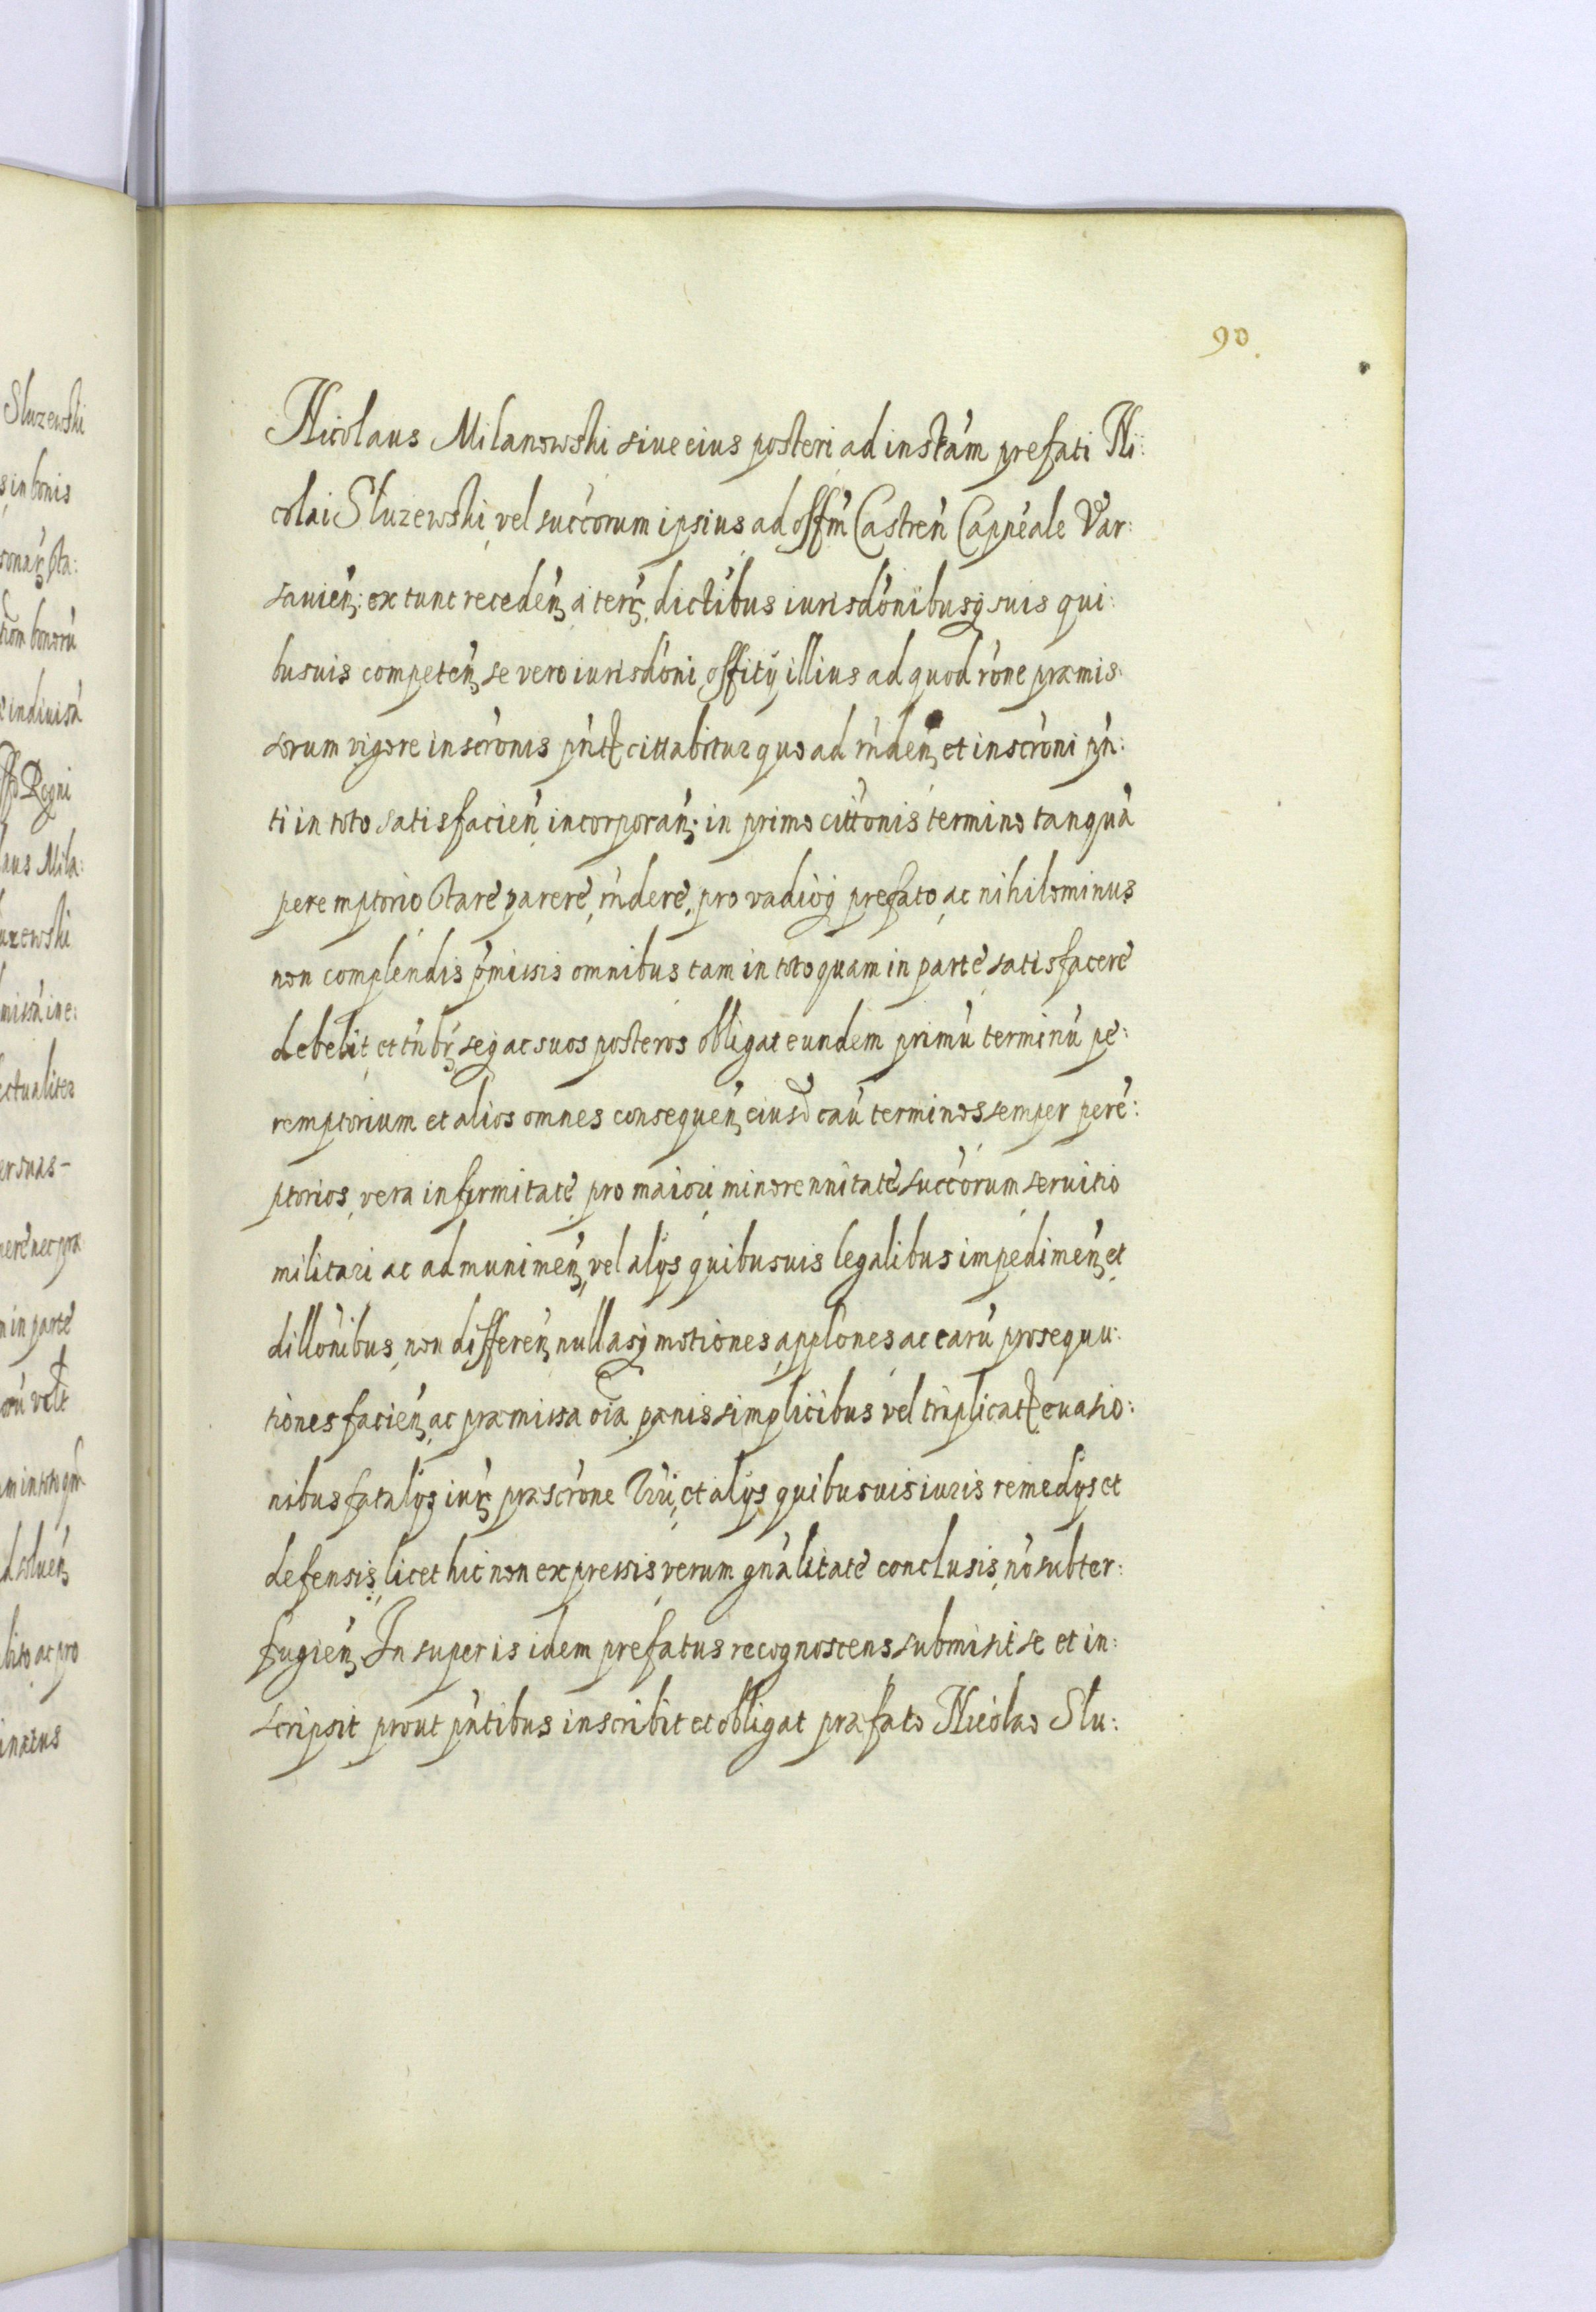 90.
Nicolaus Milanowski siue eius posteri ad instam prefati Ni:
colai Sluzewski, vel succorum ipsius, ad offm Castren Cappeale Var:
sauien: ex tunc receden a terris, dictibus iurisdonibusq suis qui:
busuis competen, se vero iurisdoni offitij illius ad quod rone præmis:
sorum vigore inscronis pnt cittabitur quo ad rnden, et inscroni pn:
ti in toto satisfacien incorporan: in primo cittonis termino tanquà
peremptorio stare parere, rndere, pro vadioq prefato, ac nihilominus
non complendis pmissis omnibus tam in toto quam in parte, satisfacere
debebit, et tnbr, seq ac suos posteros obligat eundem primu terminu pe:
remptorium et alios omnes consequen, eiusd cau terminos semper pere:
ptorios, vera infirmitate, pro maiori, minorennitate, succorum, seruitio
militari ac ad munimen, vel alijs quibusuis legalibus impedimen, et
dillonibus, non differen, nullasq motiones, applones, ac earu prosequu:
tiones facien, ac præmissa oia pænis simplicibus vel triplicat, euasio:
nibus fatalijs iur, præscrone Trri, et alijs quibusuis iuris remedijs et
defensis, licet hic non expressis, verum gnalitate conclusis, no subter:
fugien, In super is idem prefatus recognoscens submisit se et in:
scripsit prout pntibus inscribit et obligat præfato Nicolao Slu:
Sluzewski
s in bonis
bonoru
indiuisa
Regni
laus Mila:
uzewski
ctualiter
in parte
ac pro